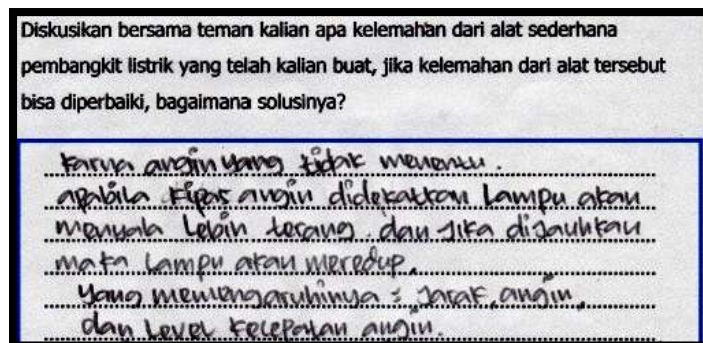 Diskusikan bersama teman kalian apa kelemahan dari alat sederhana
pembangkit listrik yang telah kalian buat, jika kelemahan dari alat tersebut
bisa diperbaiki, bagaimana solusinya?
karna angin yang tidak menentu.
apabila kipas angin didekatkan Lampu akan
menyala Lebih terang. dan jika dijauhkan
maka Lampu akan meredup.
yang memengaruhinya = Jarak, angin,
dan Level kecepatan angin.